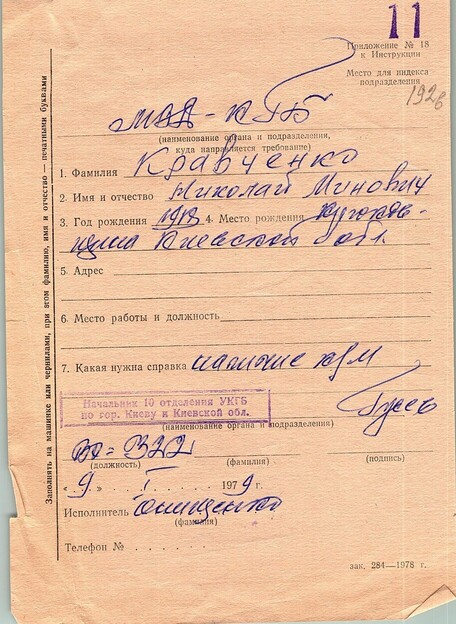 11
Приложение № 18
к Инструкции
Место для индекса
подразделения
192в
МВД - КГБ
(наименование органа и подразделения,
куда направляется требование)
1. Фамилия Кравченко
2. Имя и отчество Николай Минович
3. Год рождения 1913 4. Место рождения
Киевской обл.
5. Адрес
6. Место работы и должность
7. Какая нужна справка наличие КМ
Начальник 10 отделения УКГБ
по гор. Киеву и Киевской обл.
Гусев
(наименование органа и подразделения)
322
(должность) (фамилия) (подпись)
„9" I 1979 г.
Исполнитель Онищенко
(фамилия)
Телефон №
зак. 284—1978 г.
Заполнять на машинке или чернилами, при этом фамилию, имя и отчество — печатными буквами